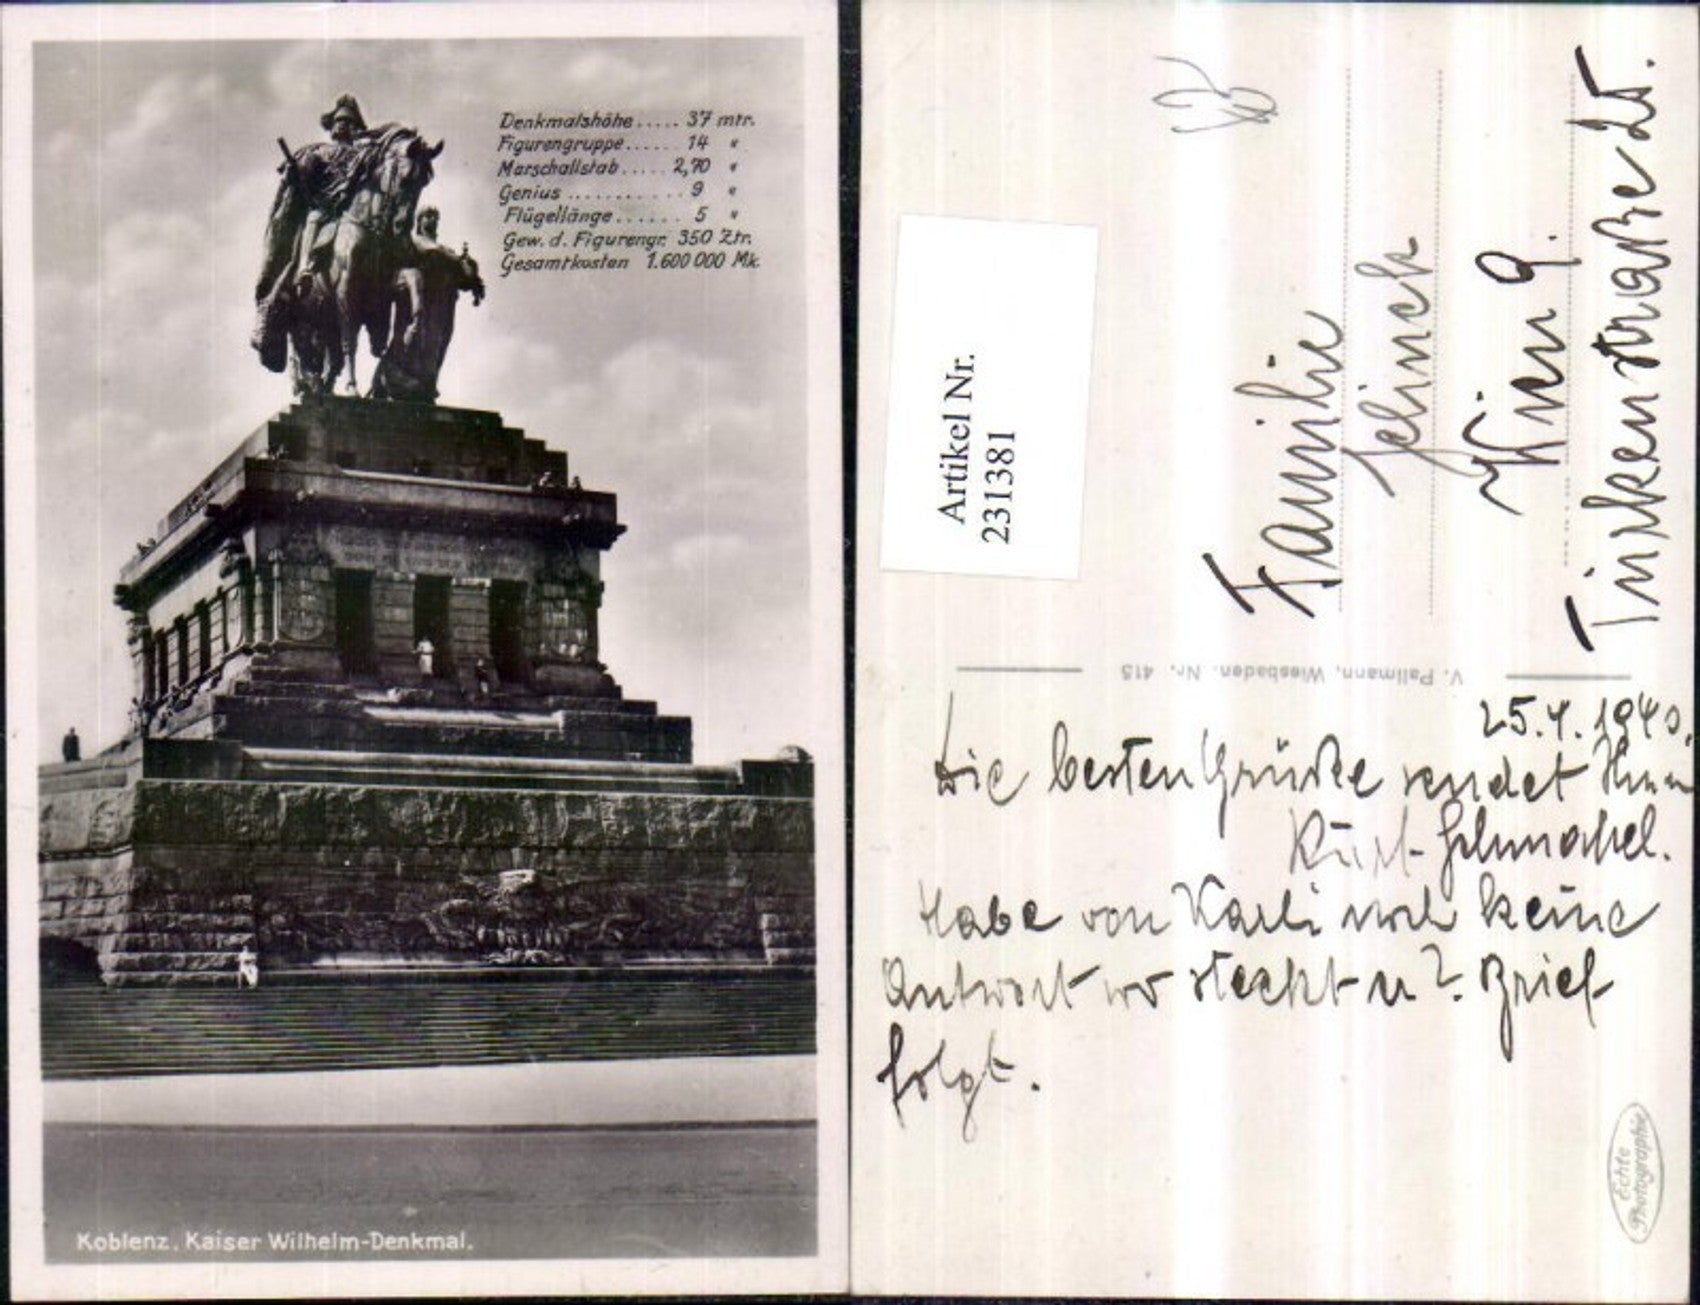 Denkmalshöhe ..... 37 mtr.
Figurengruppe ...... 14 "
Marschallstab ..... 2,70 "
Genius ........... 9 "
Flügellänge ...... 5 "
Gew. d. Figurengr. 350 Ztr.
Gesamtkosten 1.600 000 Mk.
Koblenz. Kaiser Wilhelm-Denkmal.
Artikel Nr.
231381
Familie
Jelinek
Wien 9.
Türkenstraße 25.
V. Pallmann, Wiesbaden. Nr. 415
25.4.1940.
Die besten Grüße sendet Ihnen
Kurt Schnabel.
Habe von Karli noch keine
Antwort wo steckt er? Brief
folgt.
Echte
Photographie